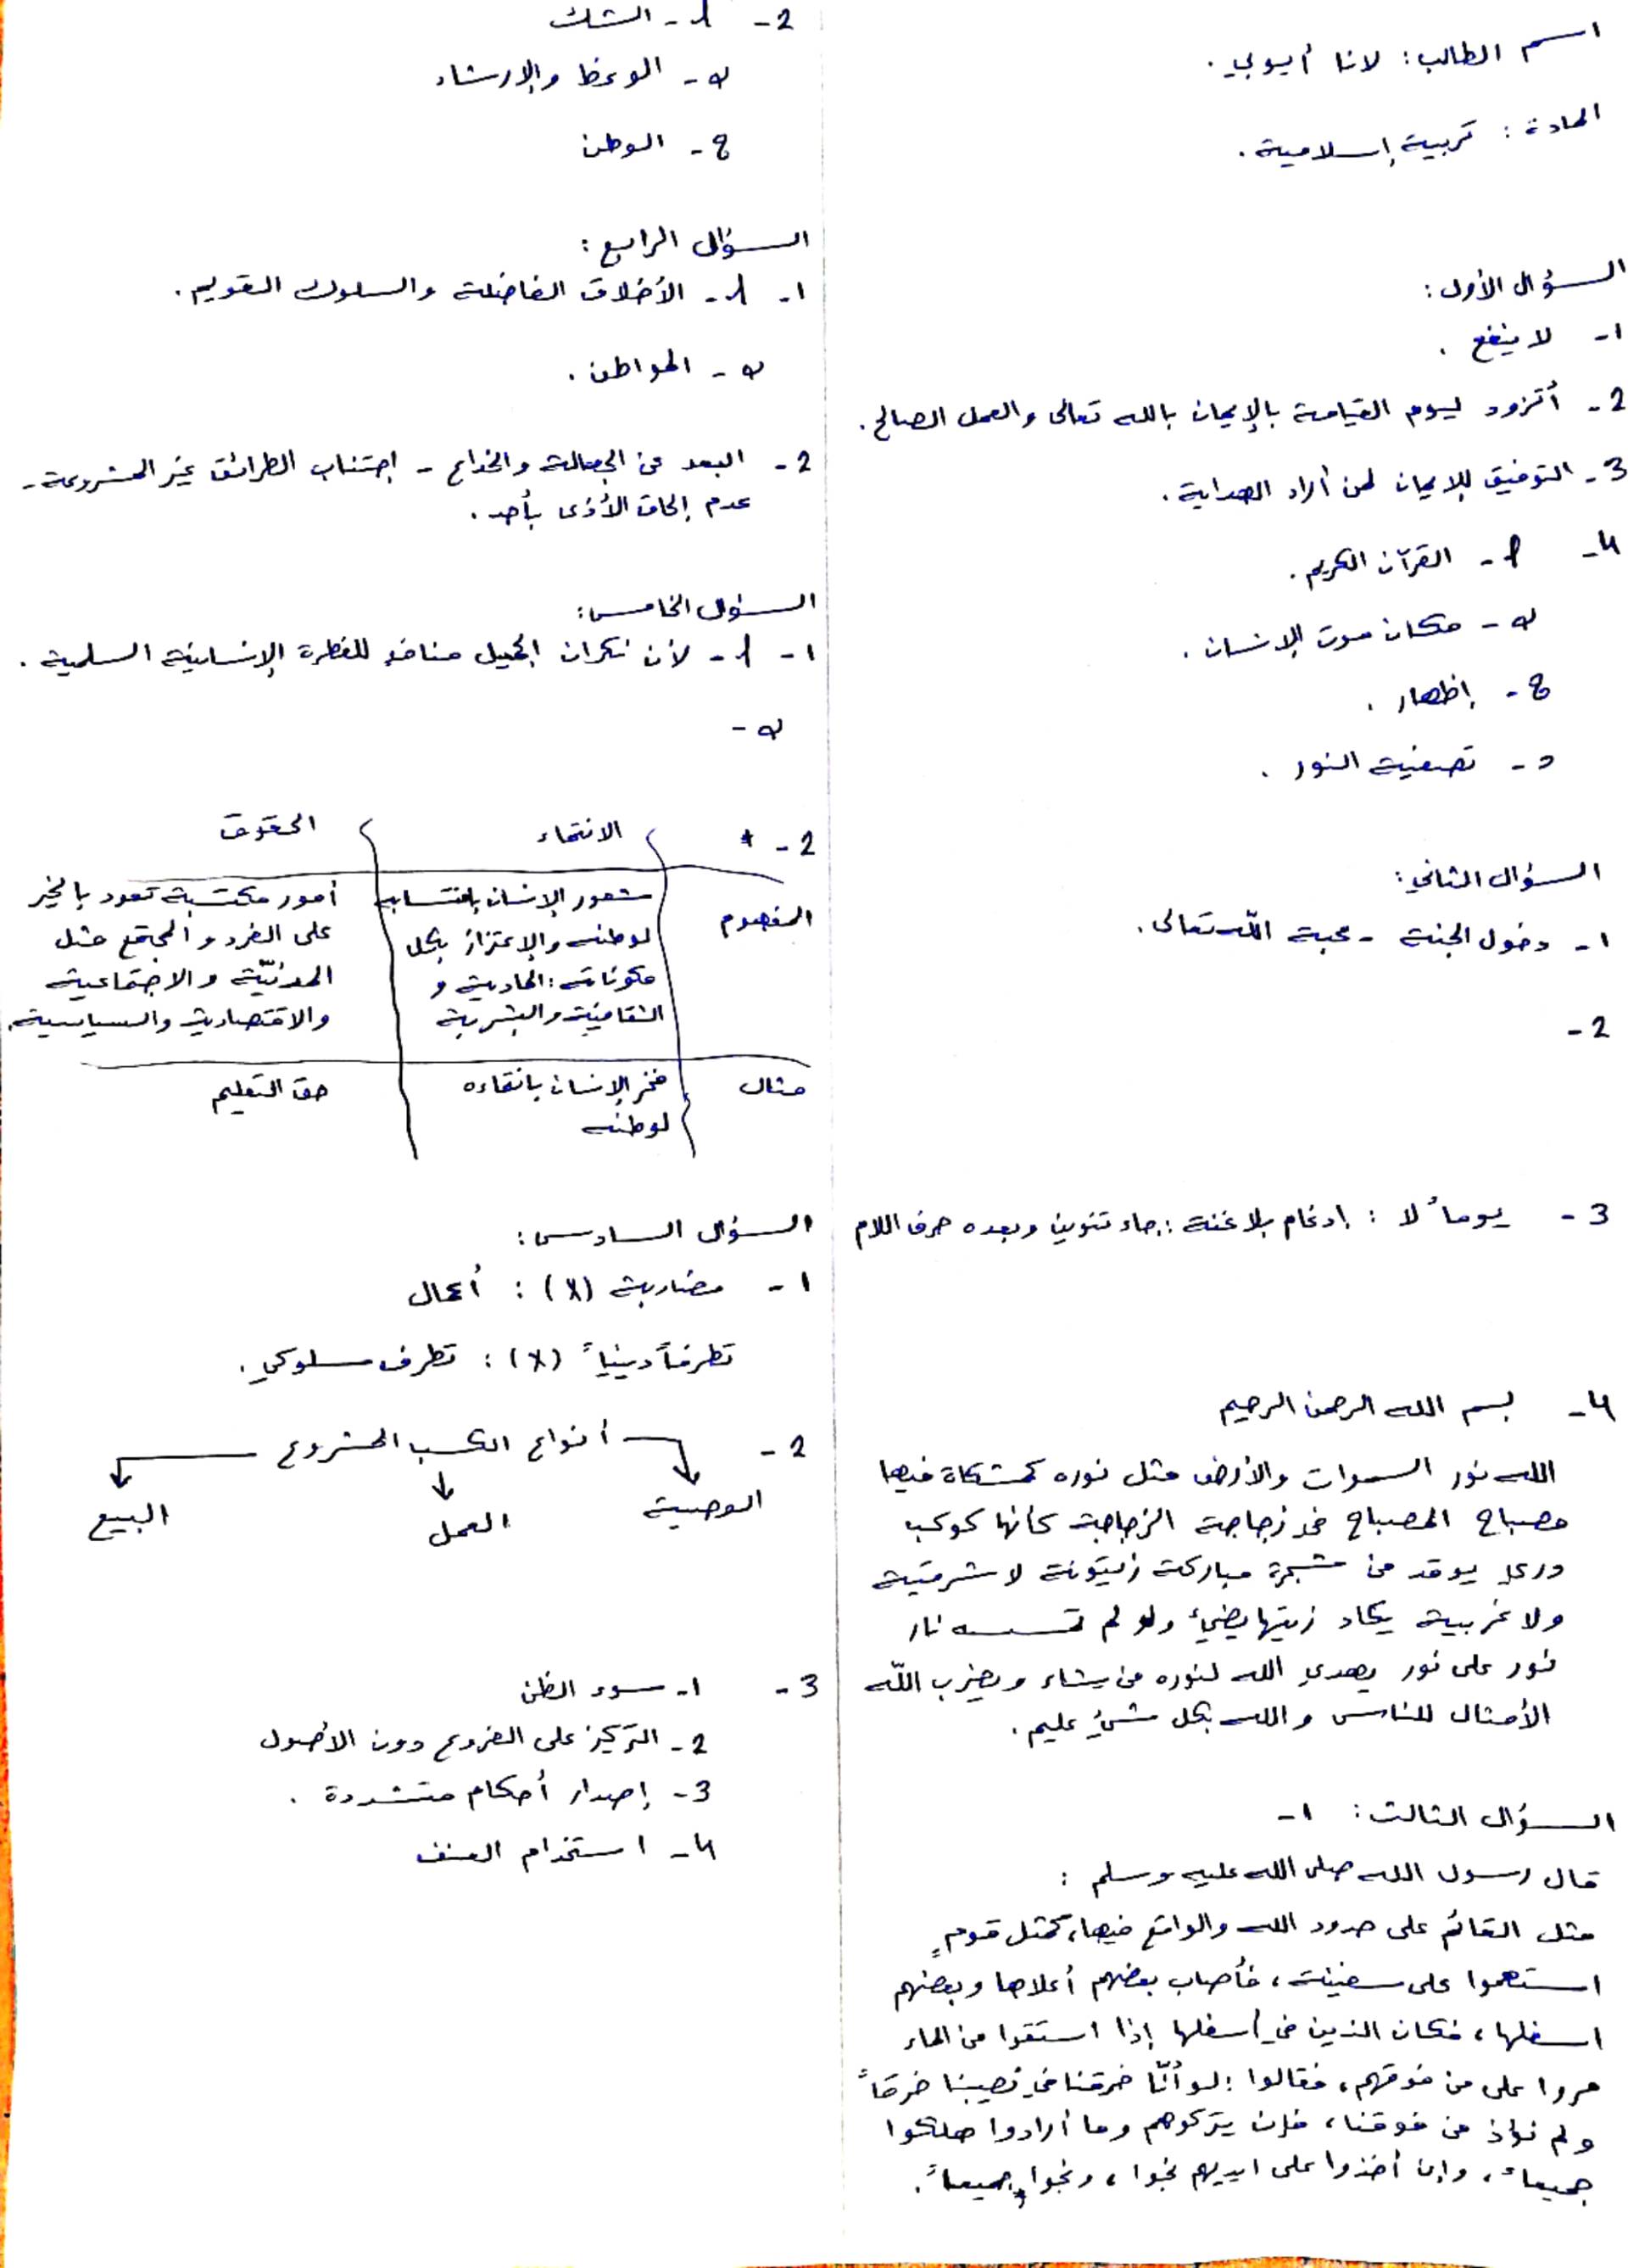 اسم الطالب: لانا أيوبي.
المادة: تربية إسلامية.
السؤال الأول:
1- لا ينفع.
2- أتزود ليوم القيامة بالإيمان بالله تعالى والعمل الصالح.
3- التوفيق للإيمان لمن أراد الهداية.
4- أ- القرآن الكريم.
ب- مكان موت الإنسان.
ج- إظهار.
د- تصفية النور.
السؤال الثاني:
1- دخول الجنة - محبة الله تعالى.
2-
3- يوماً لا: إدغام بلا غنة: جاء تنوين وبعده حرف اللام
4- بسم الله الرحمن الرحيم
الله نور السموات والأرض مثل نوره كمشكاة فيها
مصباح المصباح في زجاجة الزجاجة كأنها كوكب
دري يوقد من شجرة مباركة زيتونة لا شرقية
ولا غربية يكاد زيتها يضيء ولو لم تمسسه نار
نور على نور يهدي الله لنوره من يشاء ويضرب الله
الأمثال للناس والله بكل شيء عليم.
السؤال الثالث: 1-
قال رسول الله صلى الله عليه وسلم:
مثل القائم على حدود الله والواقع فيها، كمثل قومٍ
استهموا على سفينة، فأصاب بعضهم أعلاها وبعضهم
اسفلها، فكان الذين في أسفلها إذا استقوا من الماء
مروا على من فوقهم، فقالوا: لو أنّا خرقنا في نصيبنا خرقاً
ولم نؤذ من فوقنا، فإن يتركوهم وما أرادوا هلكوا
جميعاً، وإن أخذوا على ايديهم نجوا، ونجوا جميعاً.
2- أ- الشك
ب- الوعظ والإرشاد
ج- الوطن
السؤال الرابع:
1- أ- الأخلاق الفاضلة والسلوك القويم.
ب- المواطن.
2- البعد عن الجهالة والخداع - اجتناب الطرائق غير المشروعة -
عدم إلحاق الأذى بأحد.
السؤال الخامس:
1- أ- لأن نكران الجميل منافٍ للفطرة الإنسانية السلمية.
ب-
2- * الانتماء الحقوق
المفهوم شعور الإنسان بانتسابه أمور مكتسبة تعود بالخير
لوطنه والإعتزاز بكل على الفرد والمجتمع مثل
مكوناته: المادية و المدنيّة والاجتماعية
الثقافية والبشرية والاقتصادية والسياسية.
مثال فخر الإنسان بانتقاءه حق التعليم
لوطنه
السؤال السادس:
1- مضاربة (x): أعمال
تطرفاً دينياً (x): تطرف سلوكي.
2- أنواع الكسب المشروع
الوصية العمل البيع
3- 1- سوء الظن
2- التركيز على الفروع دون الأصول
3- إصدار أحكام متشددة.
4- استخدام العنف